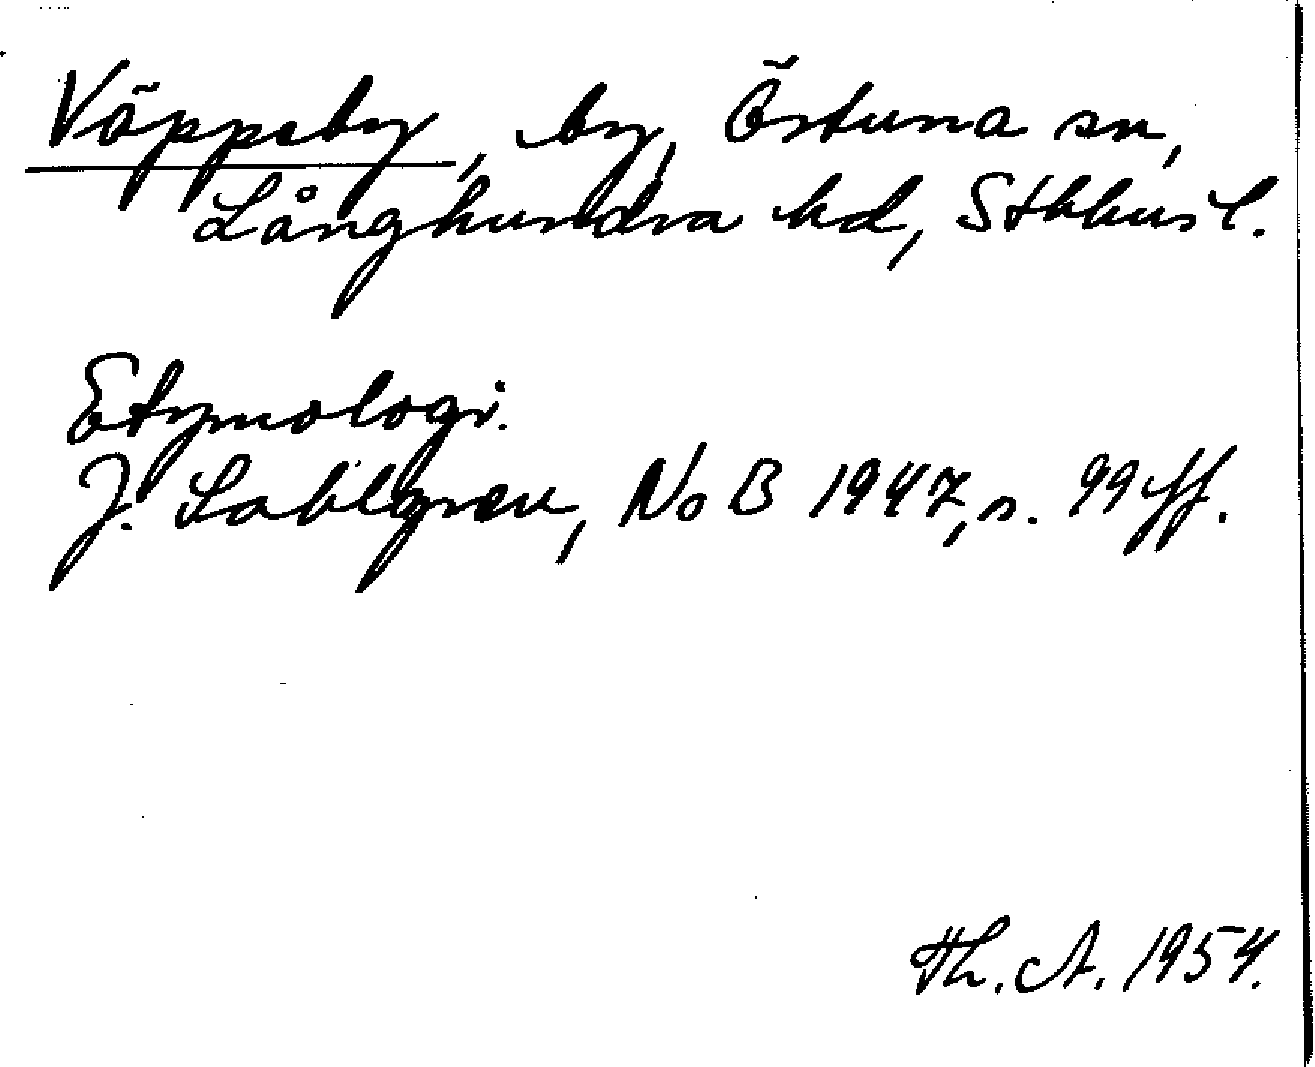 Väppeby, by, Östuna sn,
Långhundra hd, Sthlms l.
Etymologi.
J. Sahlgren, NoB 1947, s. 99 ff.
Th. A. 1954.